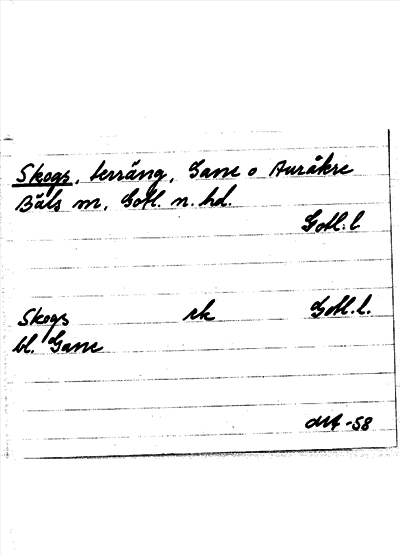 Skogs, terräng, Gane o Auråkre
Bäls sn, Gotl. n. hd.
Gotl. l
Skogs ek Gotl. l.
bl. Gane
-58